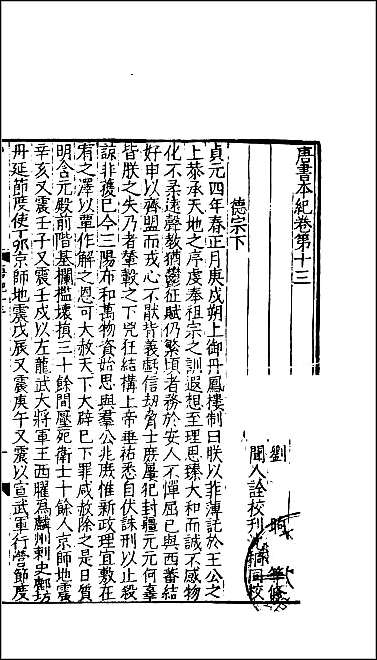 唐書本紀卷第十三
劉　昫　等修
聞人詮校刻　　桐同校
德宗下
貞元四年春正月庚戌朔上御丹鳳樓制曰朕以菲薄託於王公之
上恭承天地之序虔奉祖宗之訓遐想至理思臻大和而誠不感物
化不柔遠聲教猶鬱征賦仍繁頃者務於安人不憚屈己與西蕃結
好申以齊盟而戎心不猒背義虧信劫脅士庶屢犯封疆元元何辜
皆朕之失乃者輦轂之下兇狂結構上帝垂祐悉自伏誅刑以止殺
諒非獲已今三陽布和萬物資始思與羣公兆庶惟新政理宜敷在
宥之澤以覃作解之恩可大赦天下大辟已下罪咸赦除之是日質
明含元殿前階基欄檻壞損三十餘間壓死衛士十餘人京師地震
辛亥又震壬子又震壬戌以左龍武大將軍王西曜爲麟州刺史鄜坊
丹延節度使丁卯京師地震戊辰又震庚午又震以宣武軍行營節度